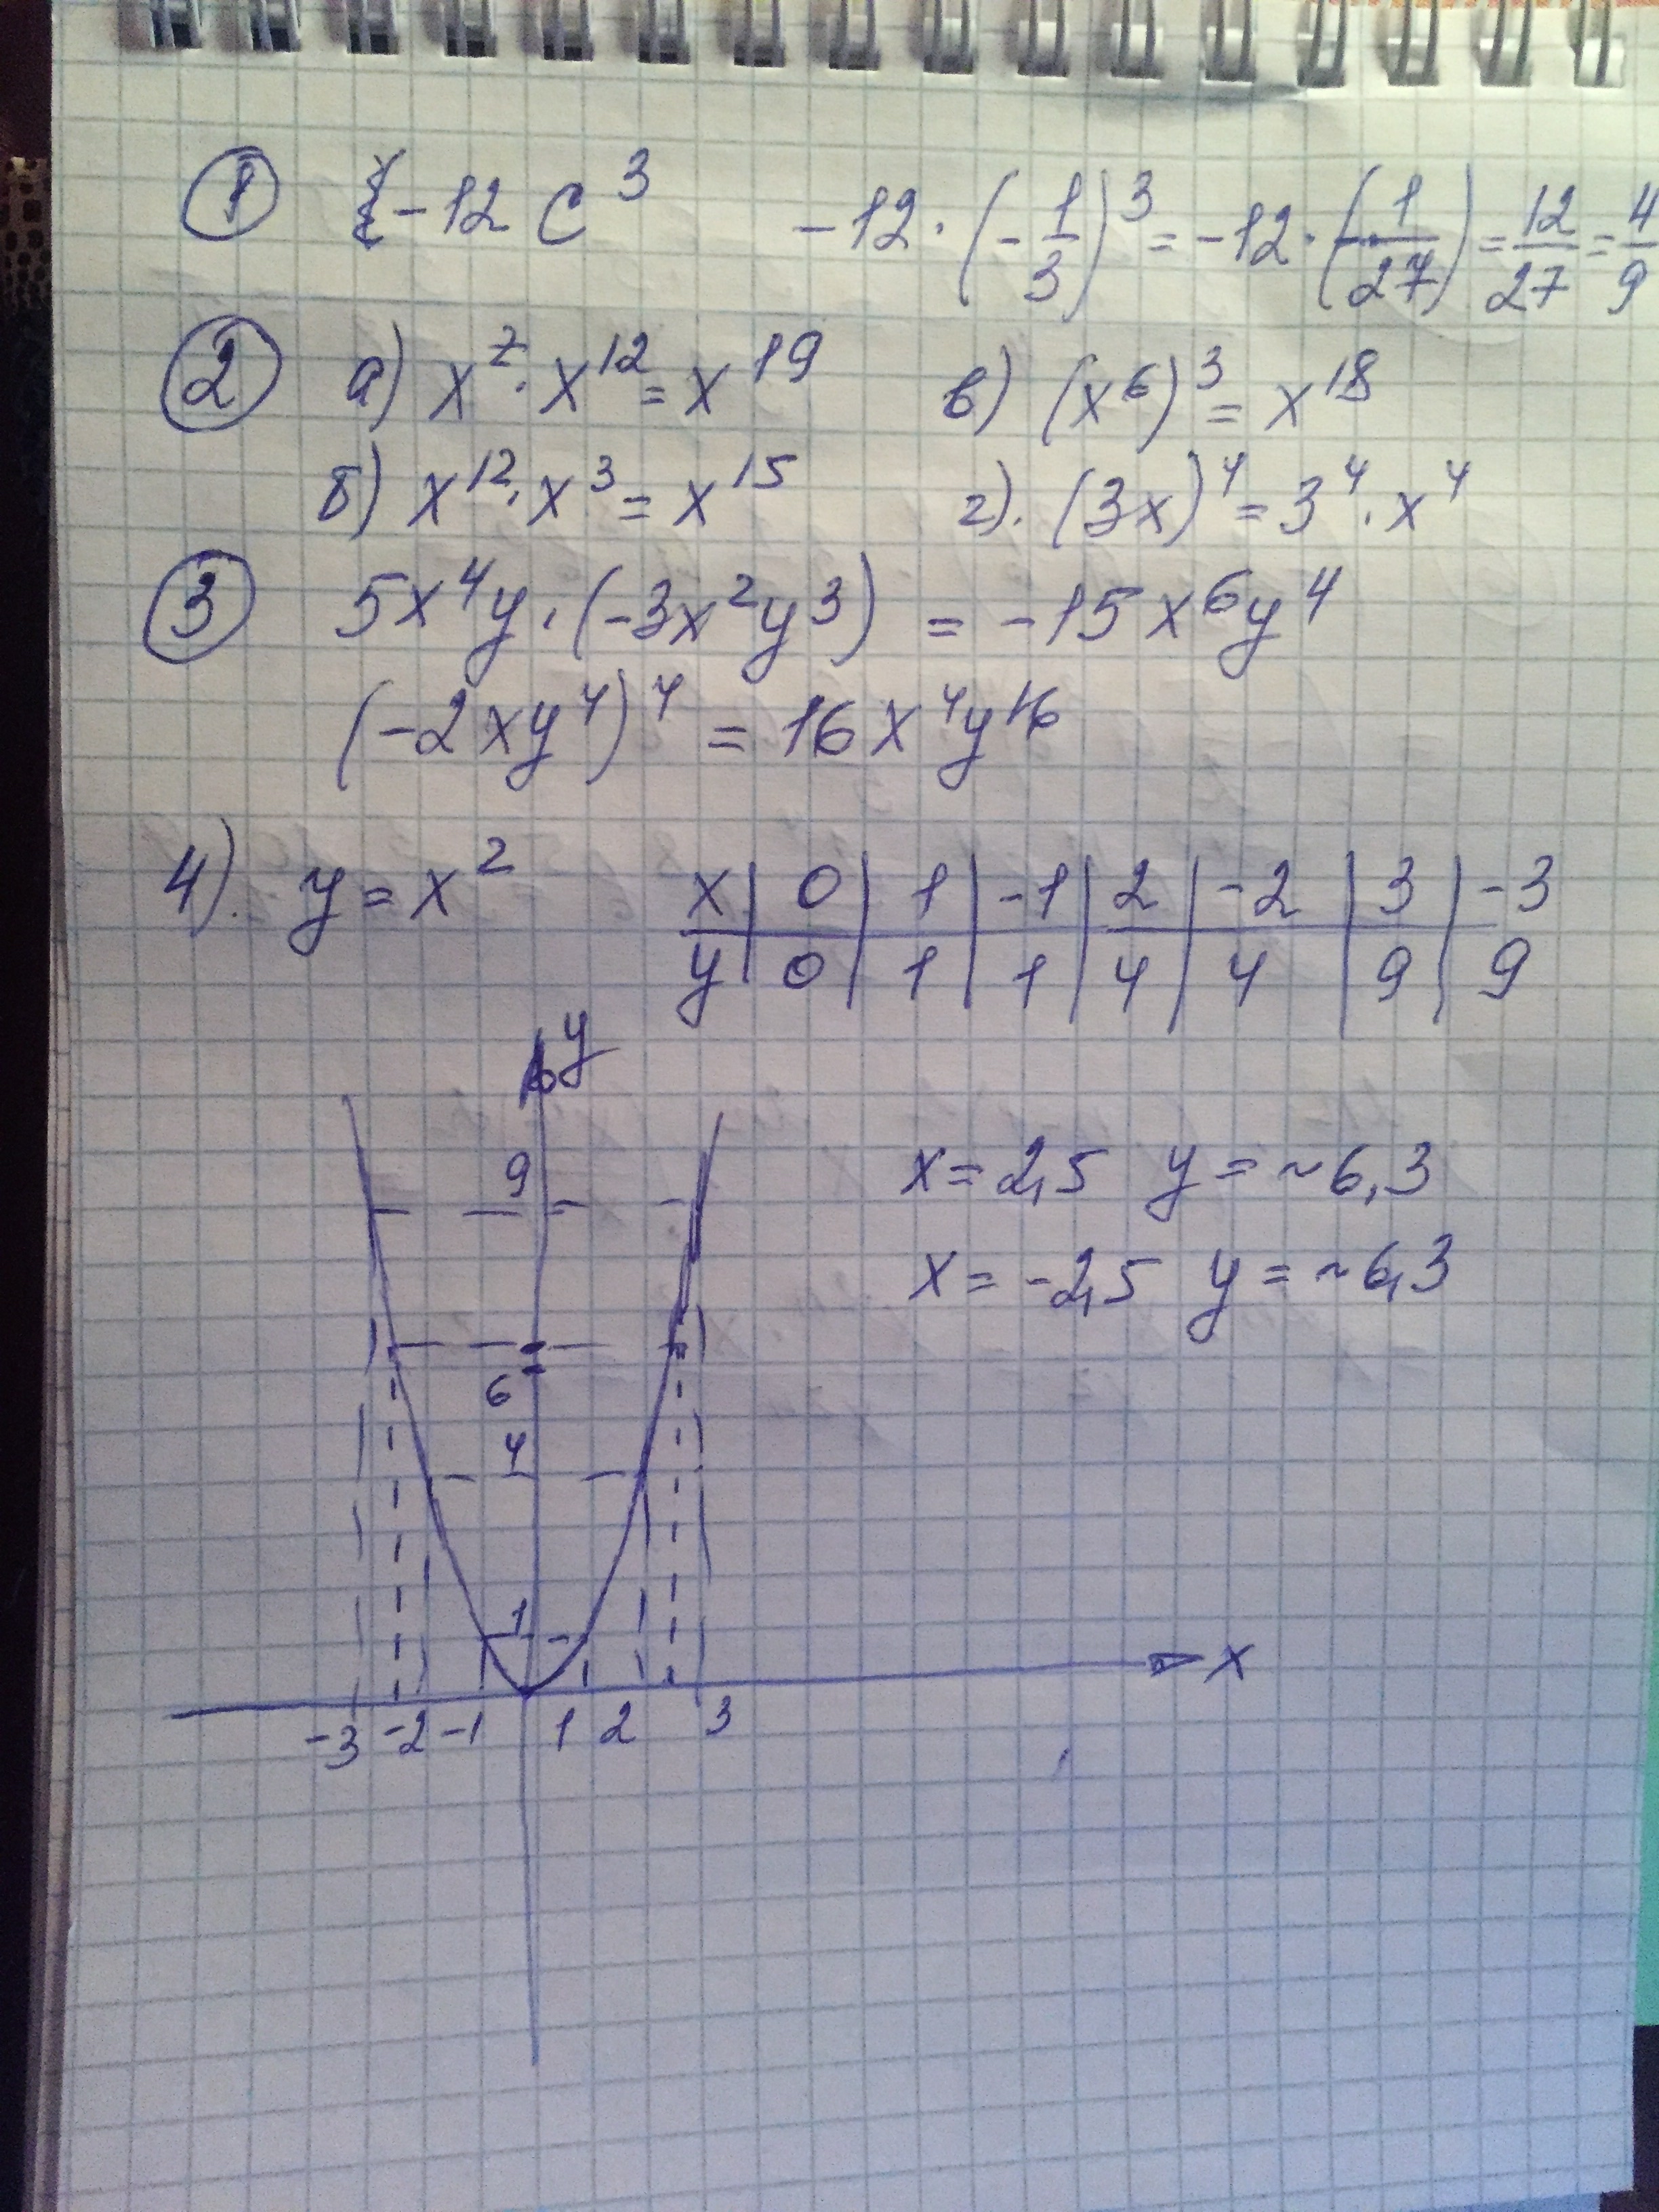 ① -12 c³ -12 · (-1/3)³ = -12 · (-1/27) = 12/27 = 4/9
② а) x⁷ · x¹² = x¹⁹ в) (x⁶)³ = x¹⁸
б) x¹² · x³ = x¹⁵ г). (3x)⁴ = 3⁴ · x⁴
③ 5x⁴y · (-3x²y³) = -15x⁶y⁴
(-2xy⁴)⁴ = 16x⁴y¹⁶
4). y = x²
x | 0 | 1 | -1 | 2 | -2 | 3 | -3
y | 0 | 1 | 1 | 4 | 4 | 9 | 9
y
9
x = 2,5 y = ~6,3
x = -2,5 y = ~6,3
6
4
1
x
-3 -2 -1 1 2 3